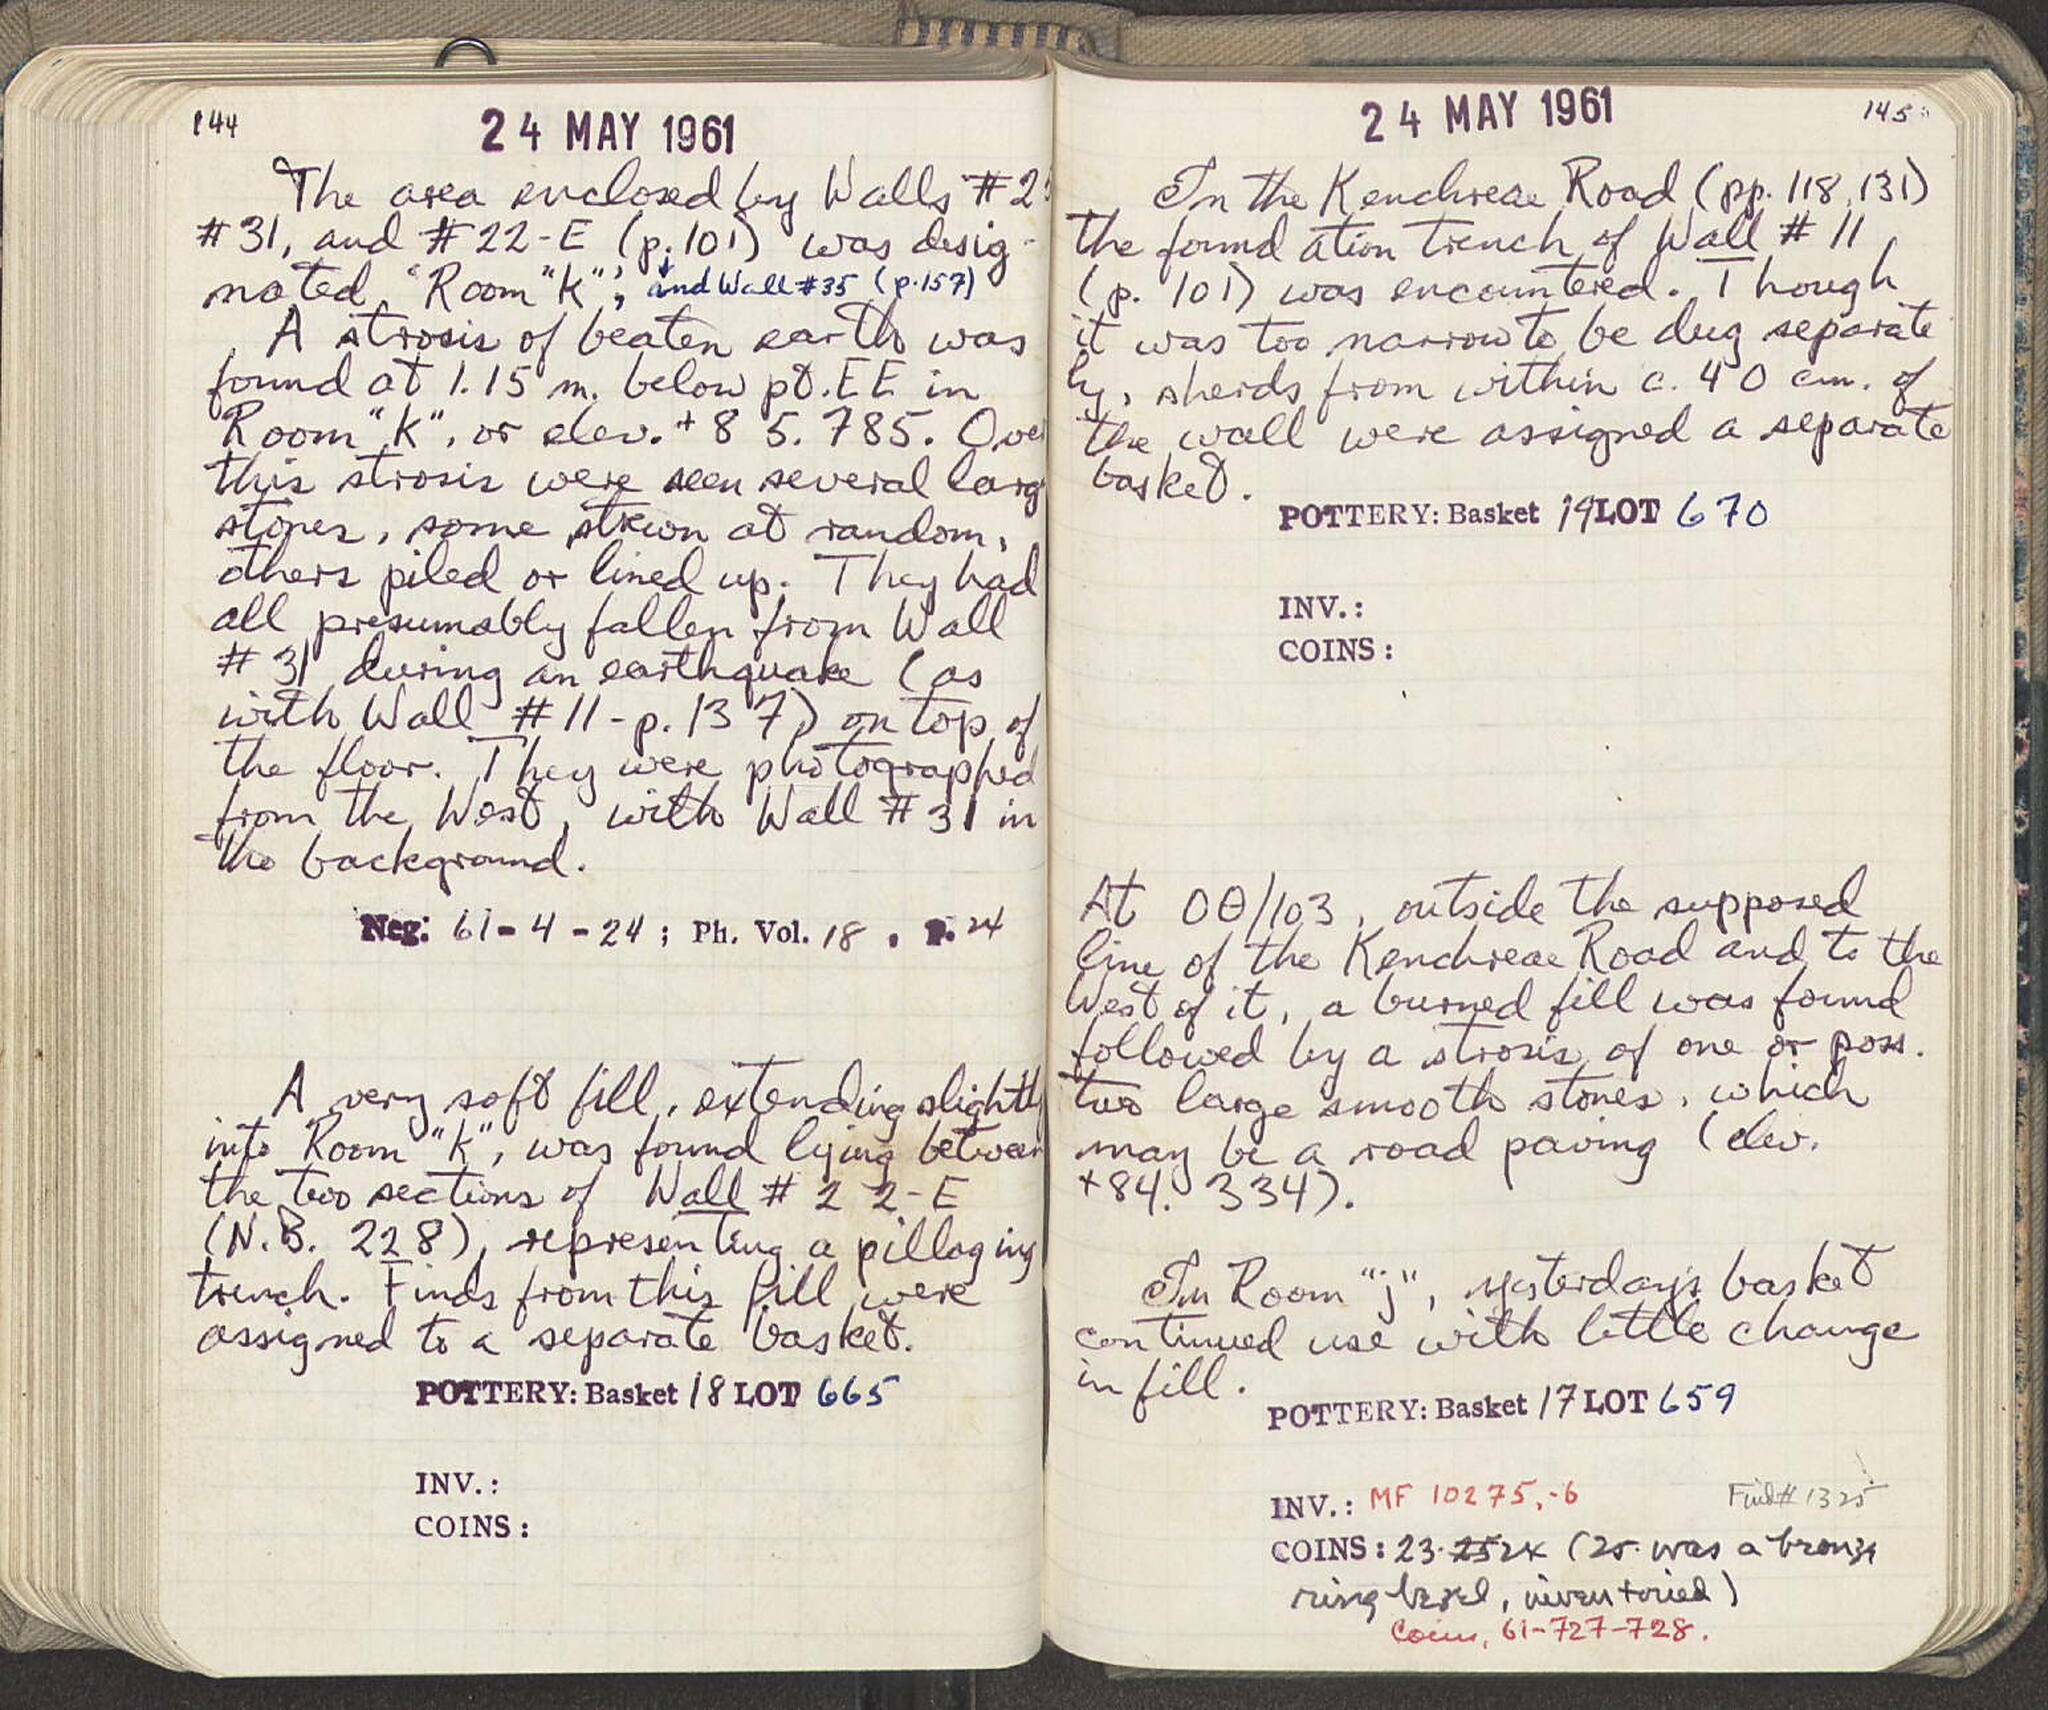 144
24 MAY 1961
The area enclosed by Walls #2
#31, and #22-E (p. 101) was desig-
nated "Room "k"; and Wall #35 (p. 157)
A strosis of beaten earth was
found at 1.15 m. below pt. EE in
Room "k", or elev. +85.785. Over
this strosis were seen several larg
stones, some strewn at random,
others piled or lined up. They had
all presumably fallen from Wall
#31 during an earthquake (as
with Wall #11 - p. 137) on top of
the floor. They were photographed
from the West, with Wall #31 in
the background.
Neg: 61-4-24; Ph. Vol. 18, p. 24
A very soft fill, extending slightly
into Room "k", was found lying between
the two sections of Wall #22-E
(N.B. 228), representing a pillaging
trench. Finds from this fill were
assigned to a separate basket.
POTTERY: Basket 18 LOT 665
INV.:
COINS:
24 MAY 1961
145
In the Kenchreae Road (pp. 118, 131)
the foundation trench of Wall #11
(p. 101) was encountered. Though
it was too narrow to be dug separate
ly, sherds from within c. 40 cm. of
the wall were assigned a separate
basket.
POTTERY: Basket 19 LOT 670
INV.:
COINS:
At OΘ/103, outside the supposed
line of the Kenchreae Road and to the
West of it, a burned fill was found
followed by a strosis of one or poss.
two large smooth stones, which
may be a road paving (elev.
+84.334).
In Room "j", yesterday's basket
continued use with little change
in fill.
POTTERY: Basket 17 LOT 659
INV.: MF 10275,-6 Find# 1325
COINS: 23-25 24 (25 was a bronze
ring bezel, inventoried)
Coins, 61-727-728.